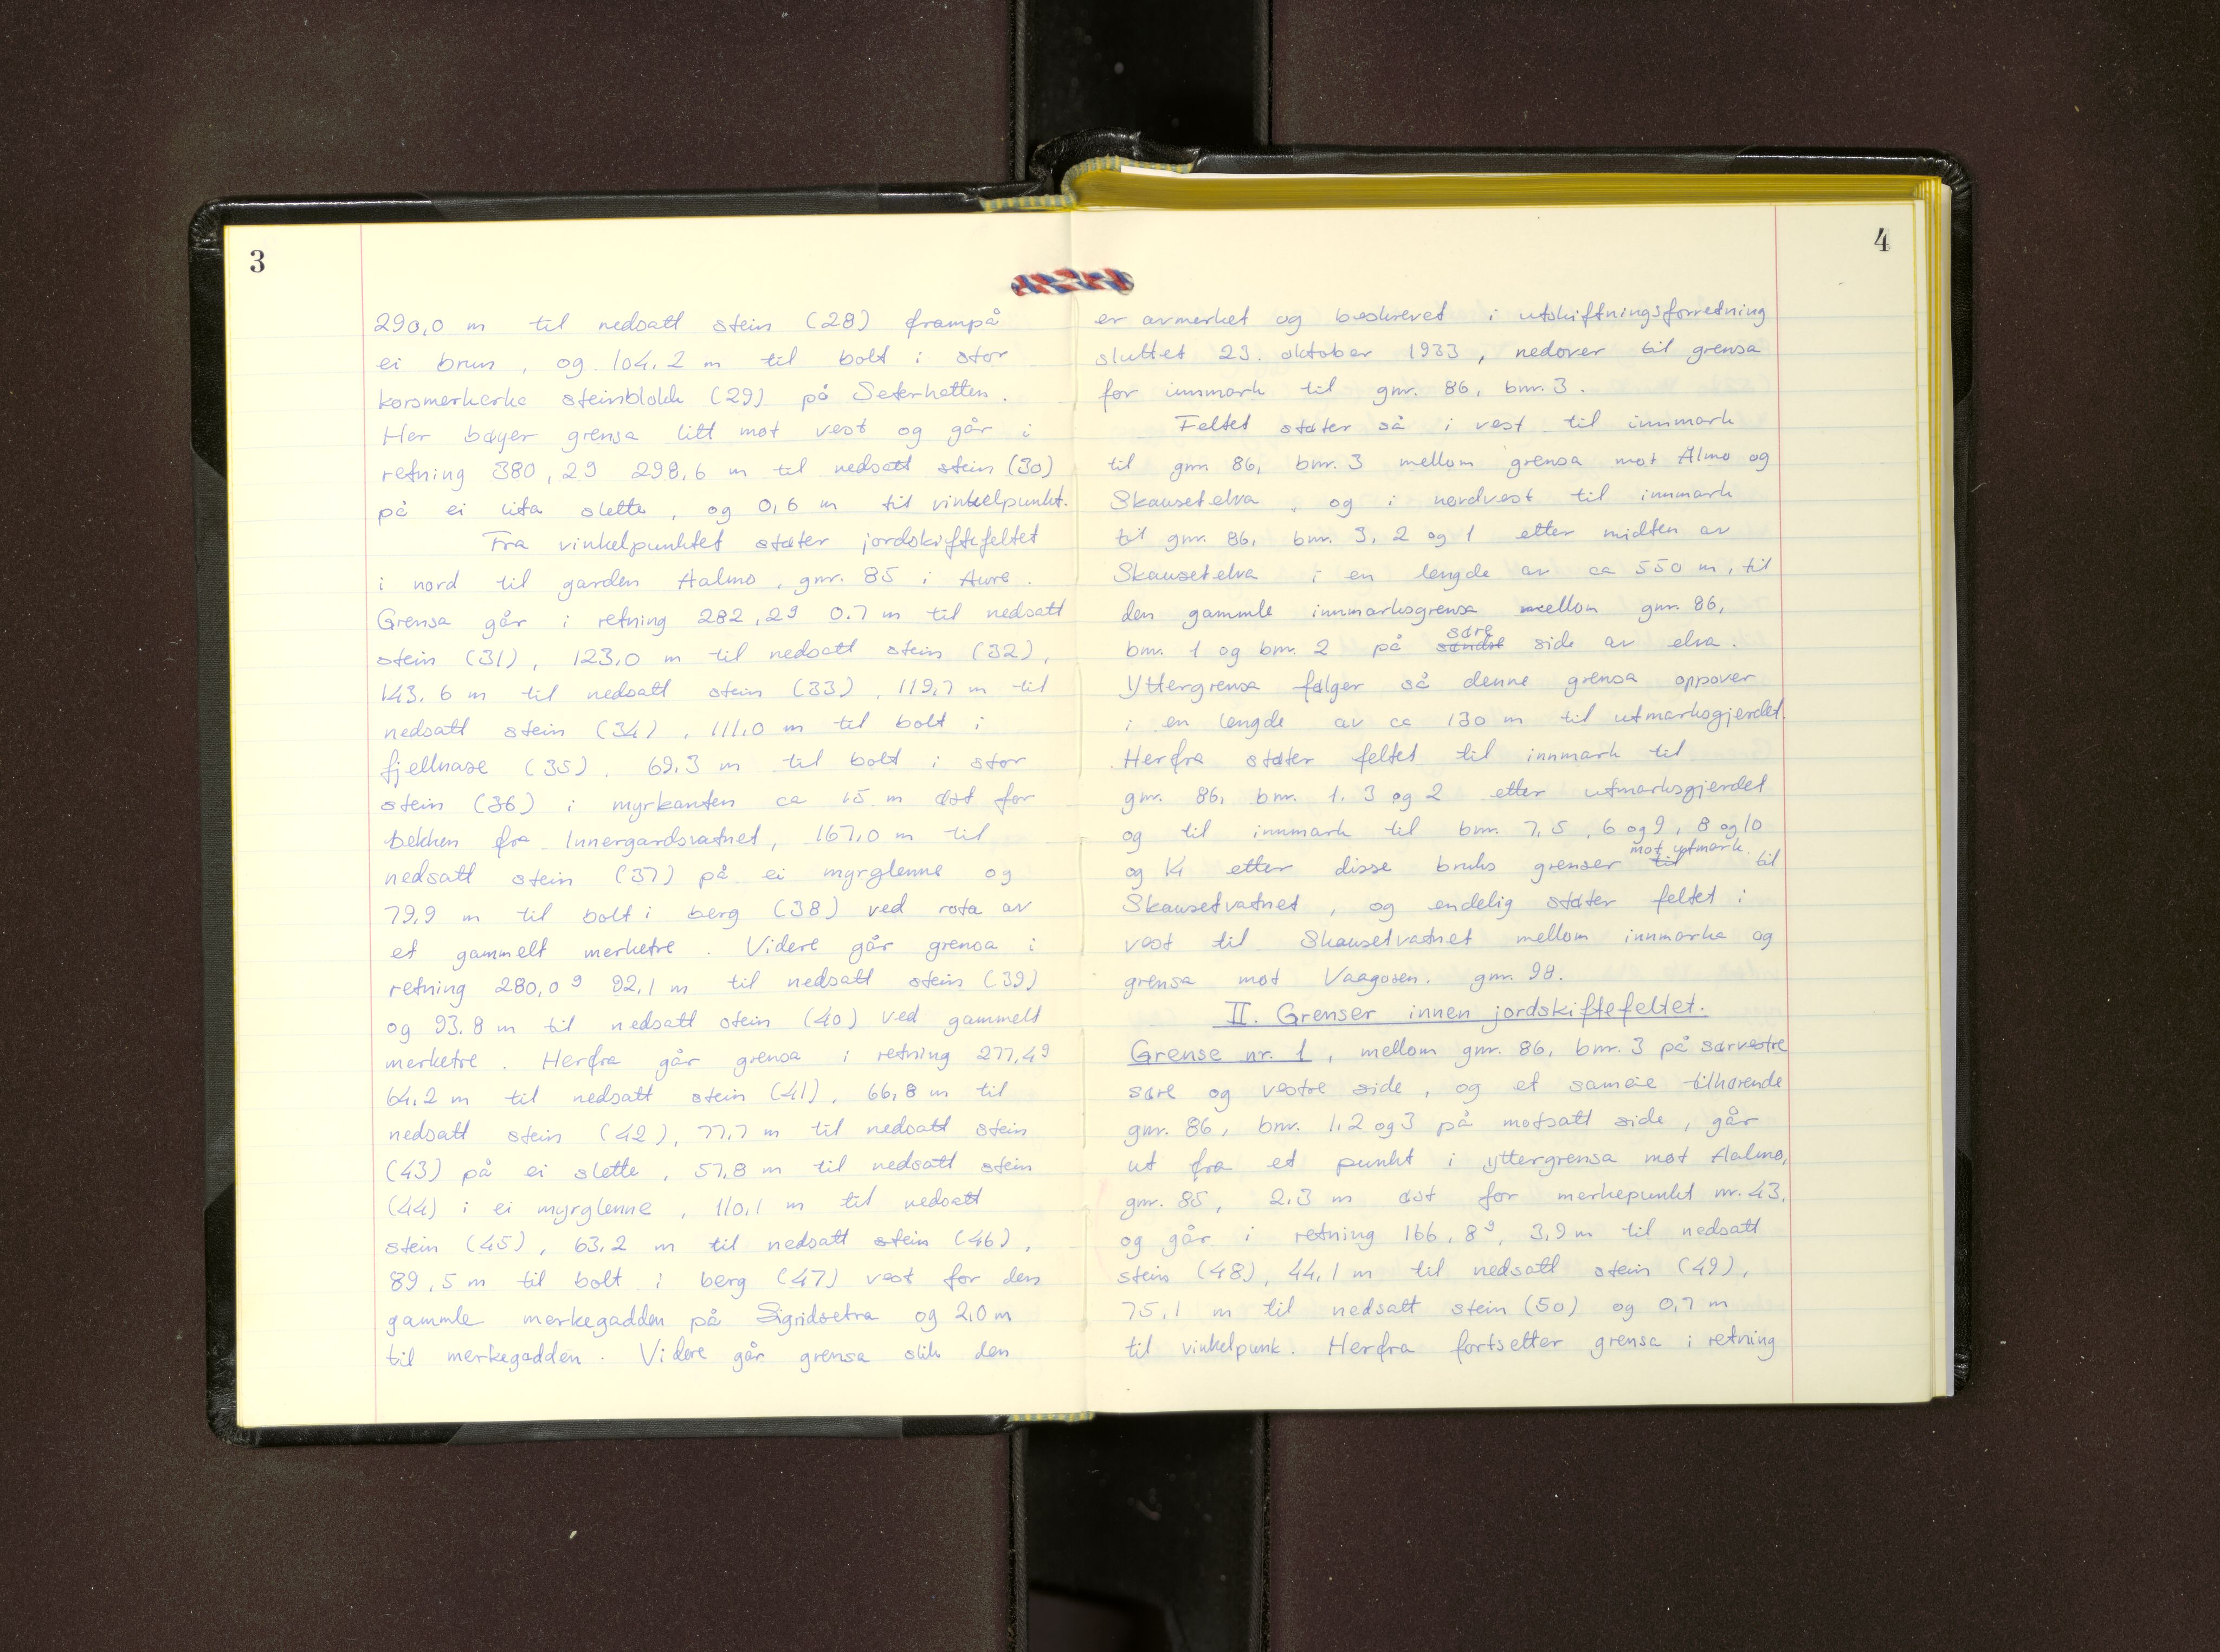 3
290,0 m til nedsatt stein (28) frampå
ei brun, og 104,2 m til bolt i stor
korsmerkerka steinblokk (29) på Seterhatten.
Her bøyer grensa litt mot vest og går i
retning 380,2g 298,6 m til nedsatt stein (30)
på ei lita slette, og 0,6 m til vinkelpunkt.
Fra vinkelpunktet støter jordskiftefeltet
i nord til garden Aalmo, gnr. 85 i Aure.
Grensa går i retning 282,2g 0.7 m til nedsatt
stein (31), 123,0 m til nedsatt stein (32),
143,6 m til nedsatt stein (33), 119,7 m til
nedsatt stein (34), 111,0 m til bolt i
fjellnase (35), 69,3 m til bolt i stor
stein (36) i myrkanten ca 15 m øst for
bekken fra Innergardsvatnet, 167,0 m til
nedsatt stein (37) på ei myrglenne og
79,9 m til bolt i berg (38) ved rota av
et gammelt merketre. Videre går grensa i
retning 280,0g 92,1 m til nedsatt stein (39)
og 93,8 m til nedsatt stein (40) ved gammelt
merketre. Herfra går grensa i retning 277,4g
64,2 m til nedsatt stein (41), 66,8 m til
nedsatt stein (42), 77,7 m til nedsatt stein
(43) på ei slette, 57,8 m til nedsatt stein
(44) i ei myrglenne, 110,1 m til nedsatt
stein (45), 63,2 m til nedsatt stein (46),
89,5 m til bolt i berg (47) vest for den
gammle merkegadden på Sigridsetra og 2,0 m
til merkegadden. Videre går grensa slik den
4
er avmerket og beskrevet i utskiftningsforretning
sluttet 23. oktober 1933, nedover til grensa
for innmark til gnr. 86, bnr. 3.
Feltet støter så i vest til innmark
til gnr. 86, bnr. 3 mellom grensa mot Almo og
Skausetelva, og i nordvest til innmark
til gnr. 86, bnr. 3, 2 og 1 etter midten av
Skausetelva i en lengde av ca 550 m, til
den gammle innmarksgrensa mellom gnr. 86,
søre
bnr. 1 og bnr. 2 på søndst side av elva.
Yttergrensa følger så denne grensa oppover
i en lengde av ca 130 m til utmarksgjerdet.
Herfra støter feltet til innmark til
gnr. 86, bnr. 1, 3 og 2 etter utmarksgjerdet
og til innmark til bnr. 7, 5, 6 og 9, 8 og 10
mot utmark.
og 14 etter disse bruks grenser til til
Skausetvatnet, og endelig støter feltet i
vest til Skausetvatnet mellom innmarka og
grensa mot Vaagosen, gnr. 98.
II. Grenser innen jordskiftefeltet.
Grense nr. 1, mellom gnr. 86, bnr. 3 på sørvestre
søre og vestre side, og et sameie tilhørende
gnr. 86, bnr. 1, 2 og 3 på motsatt side, går
ut fra et punkt i yttergrensa mot Aalmo,
gnr. 85, 2,3 m øst for merkepunkt nr. 43,
og går i retning 166,8g, 3,9 m til nedsatt
stein (48), 44,1 m til nedsatt stein (49),
75,1 m til nedsatt stein (50) og 0,7 m
til vinkelpunk. Herfra fortsetter grensa i retning